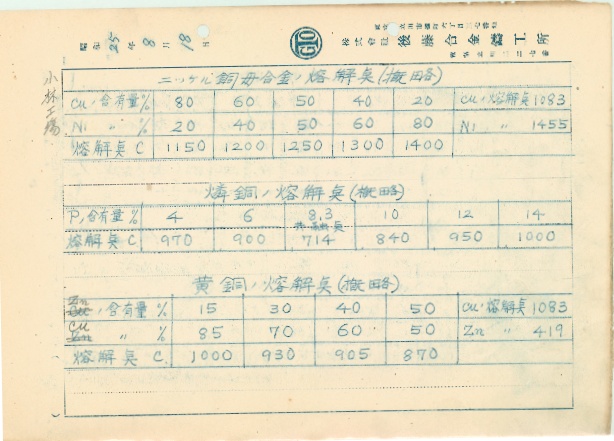 昭和25年8月18日
GTO
株式會社 後藤合金鑄工所
小林工場
ニッケル銅母合金ノ熔解臭(概略)
Cu ノ含有量 % 80 60 50 40 20 Cuノ熔解臭 1083
Ni 〃 % 20 40 50 60 80 Ni 〃 1455
熔解臭 C 1150 1200 1250 1300 1400
燐銅ノ熔解臭(概略)
Pノ含有量 % 4 6 8.3 10 12 14
熔解臭 C. 970 900 714 840 950 1000
黄銅ノ熔解臭(概略)
Zn ノ含有量 % 15 30 40 50 Cuノ熔解臭 1083
Cu 〃 % 85 70 60 50 Zn 〃 419
熔解臭 C. 1000 930 905 870